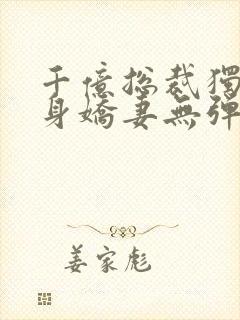 千億总裁獨
身嬌妻無彈
姜家彪